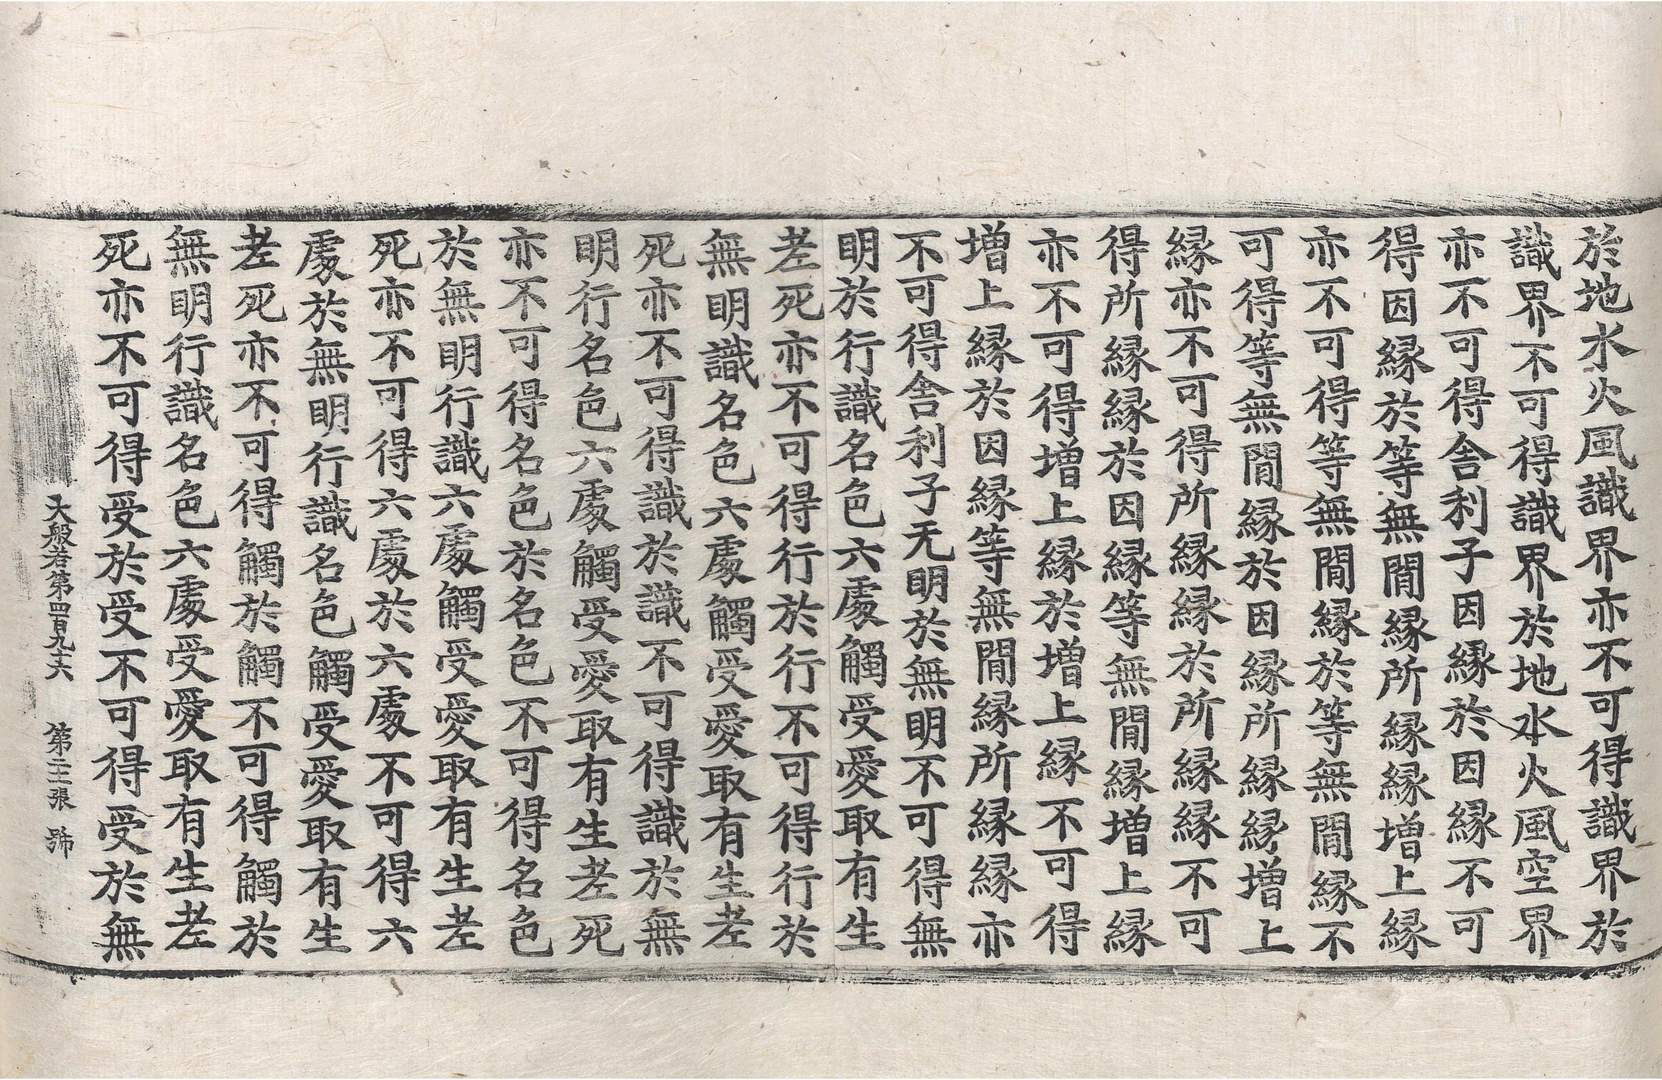 於地水火風識界亦不可得識界於
識界不可得識界於地水火風空界
亦不可得舍利子因縁於因縁不可
得因縁於等無閒縁所縁縁増上縁
亦不可得等無閒縁於等無閒縁不
可得等無閒縁於因縁所縁縁増上
縁亦不可得所縁縁於所縁縁不可
得所縁縁於因縁等無閒縁増上縁
亦不可得増上縁於増上縁不可得
増上縁於因縁等無閒縁所縁縁亦
不可得舍利子无明於無明不可得無
明於行識名色六處觸受愛取有生
老死亦不可得行於行不可得行於
無明識名色六處觸受愛取有生老
死亦不可得識於識不可得識於無
明行名色六處觸受愛取有生老死
亦不可得名色於名色不可得名色
於無明行識六處觸受愛取有生老
死亦不可得六處於六處不可得六
處於無明行識名色觸受愛取有生
老死亦不可得觸於觸不可得觸於
無明行識名色六處受愛取有生老
死亦不可得受於受不可得受於無
大般若第四百九十六 第張 號